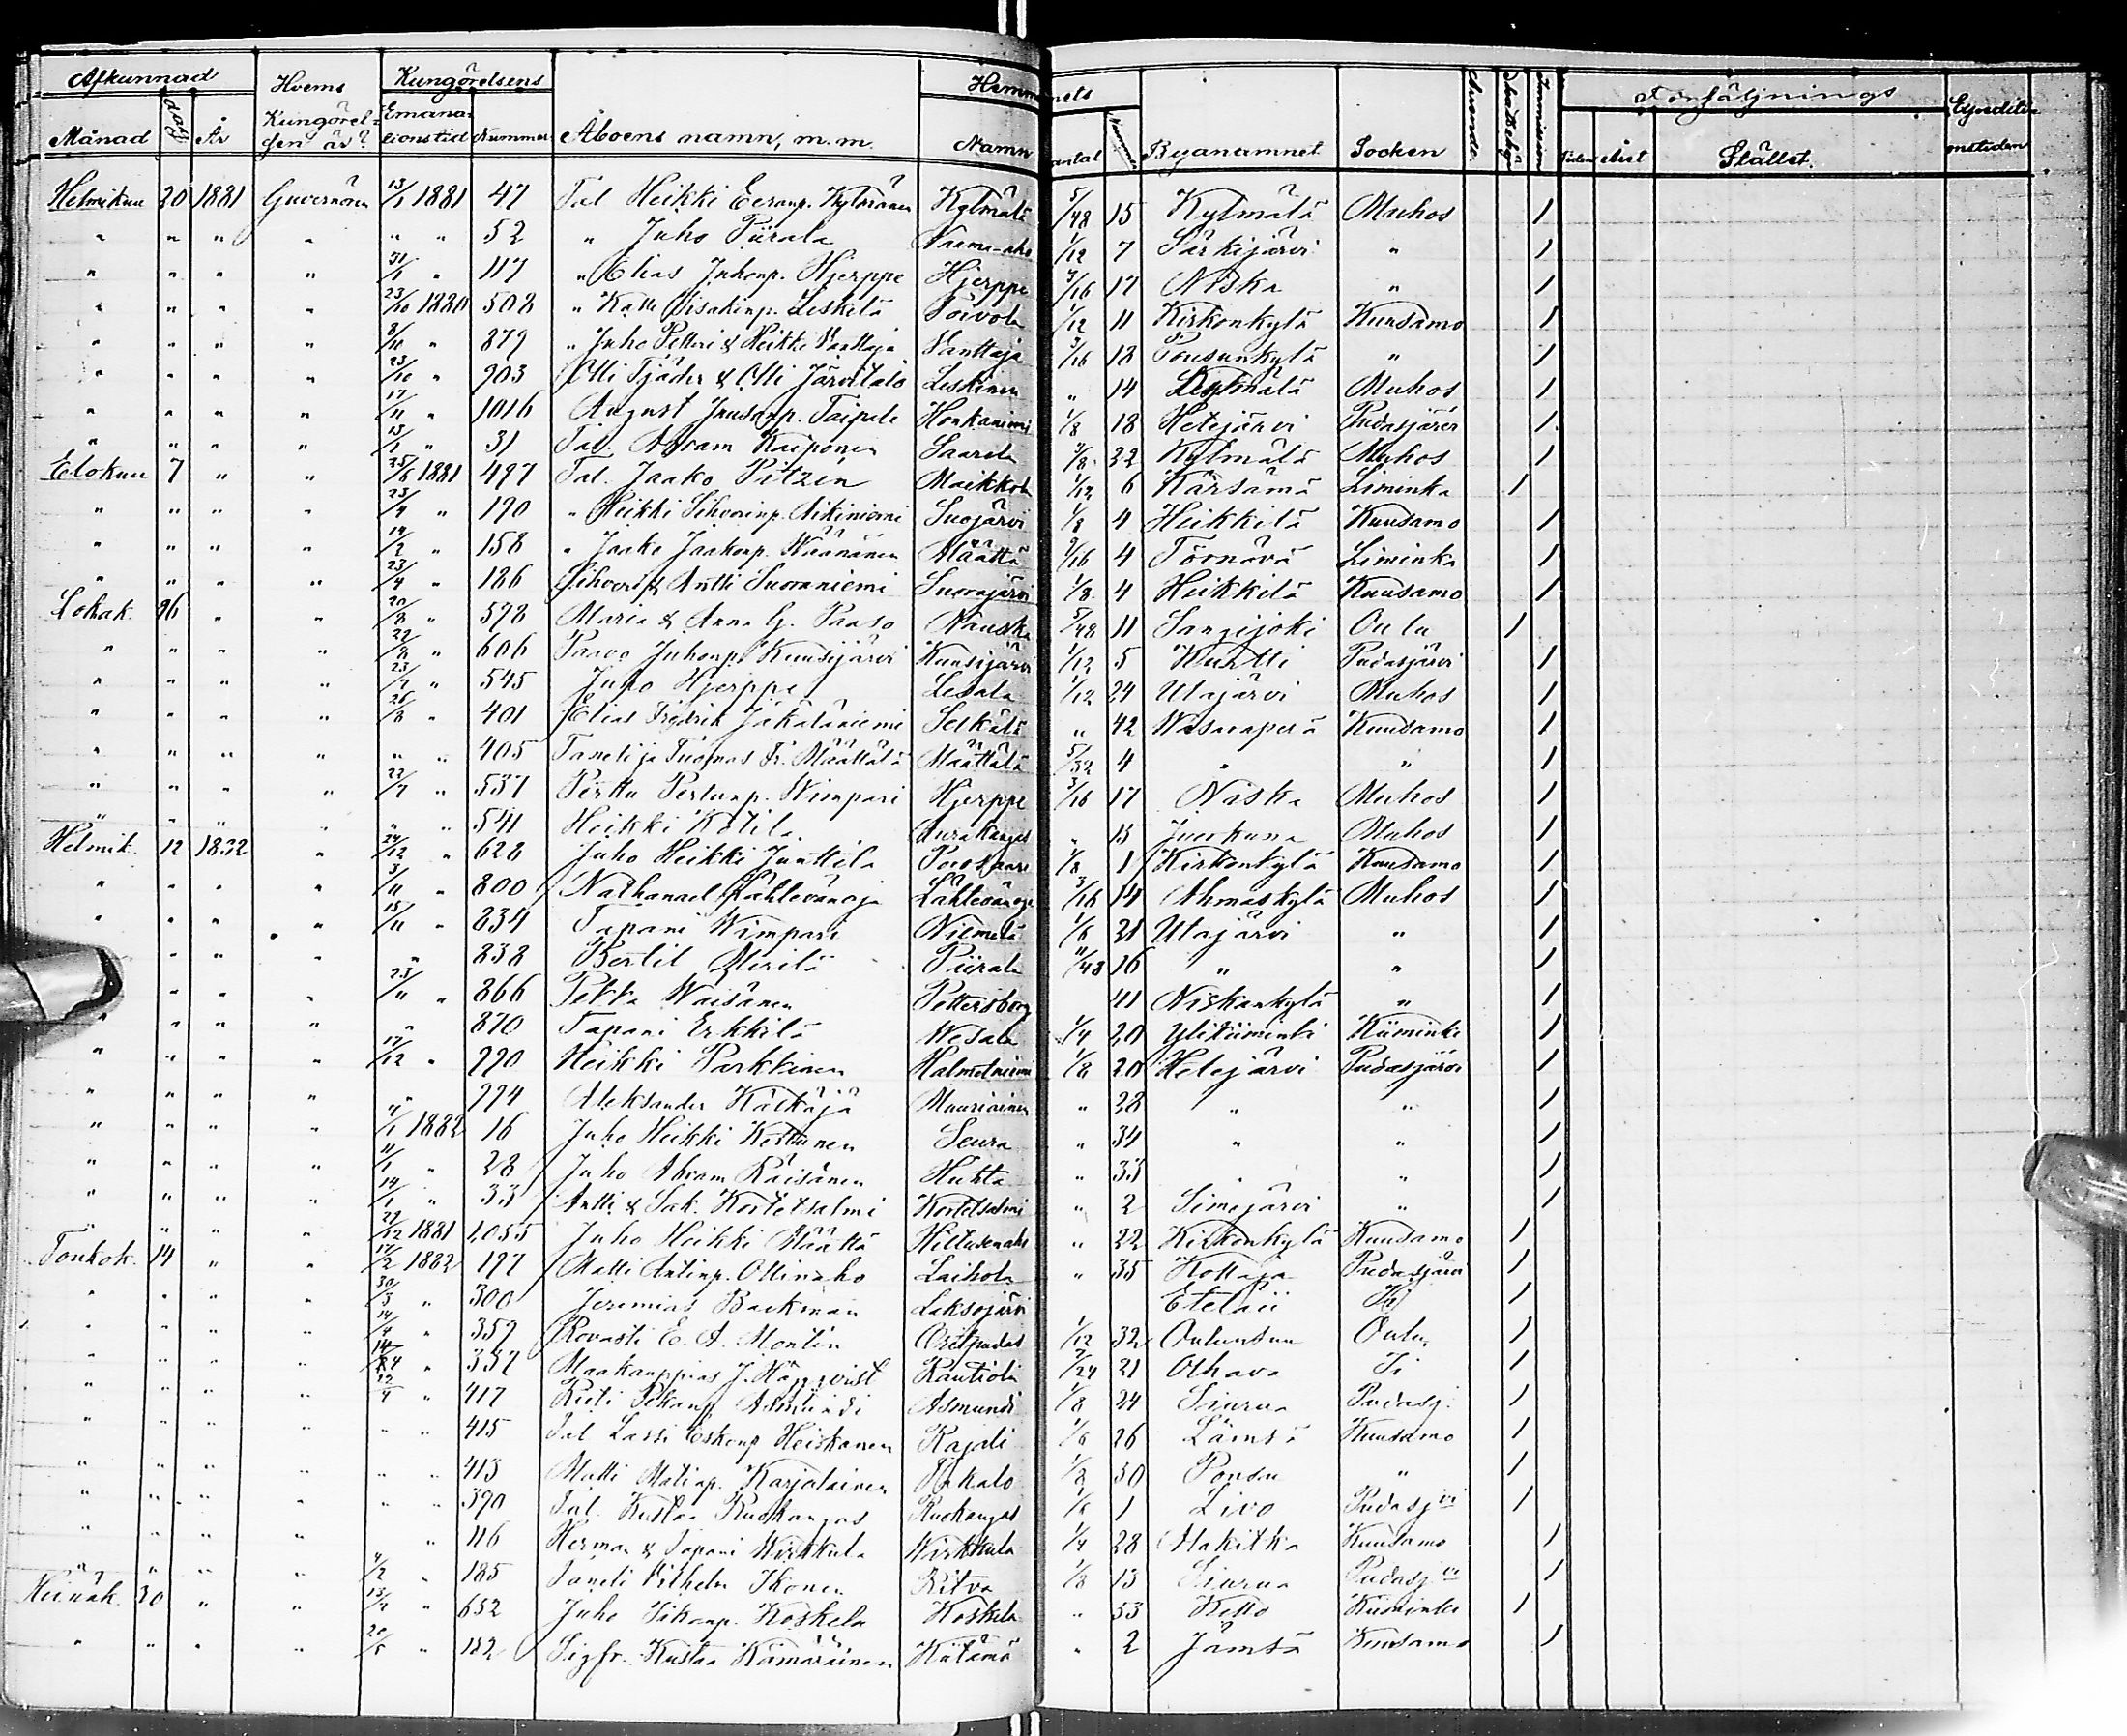 Afkunnad Hvems Kungörelsens Hemmanets Försäljnings Expeditionstiden
Månad dag År Kungörelsen är? Emanationstid Nummer Åboens namn, m. m. Namn antal Byanamnet Socken Immission Tiden Året Stället.
Helmikuu 20 1881 Guvernören 13/1 1881 47 Tal Heikki Eeranp. Kylmänen Kylmälä 5/48 15 Kylmälä Muhos /
" " " " " " 52 " Juho Piirala Vaama-aho 1/12 7 Särkijärvi " /
" " " " 31/1 " 117 " Elias Juhonp. Hjerppe Hjerppe 3/16 17 Niska " /
" " " " 23/10 1880 508 " Kalle Iisakinp. Leskelä Toivola 1/12 11 Kirkonkylä Kuusamo /
" " " " 8/10 " 879 " Juho Petteri & Heikki Vanttaja Vanttaja 3/16 12 Pousunkylä " /
" " " " 23/10 " 903 Olli Tjäder & Olli Järvitalo Leskinen " 14 Kylmälä Muhos /
" " " " 17/11 " 1016 August Juusonp. Taipale Honkaniemi 1/8 18 Hetejärvi Pudasjärvi /
" " " " 13/1 " 31 Tal. Abram Kaiponen Saarela 3/8 22 Kylmälä Muhos /
Elokuu 7 " " 25/6 1881 497 Tal. Jaako Pitzén Maikkola 1/12 6 Kärsämä Liminka /
" " " " 23/4 " 190 " Heikki Sihverinp. Aikiniemi Suojärvi 1/8 4 Heikkilä Kuusamo /
" " " " 14/2 " 158 " Jaako Jaakonp. Väänänen Määttä 3/16 4 Törnävä Liminka /
" " " " 23/4 " 186 Sihveri & Antti Suoraniemi Suorajärvi 1/8 4 Heikkilä Kuusamo /
Lokak. 26 " " 20/8 " 578 Maria & Anna G. Paaso Nauska 5/48 11 Sangijoki Oulu /
" " " " 22/8 " 606 Paavo Juhonp. Kuusijärvi Kuusijärvi 1/12 5 Kurtti Pudasjärvi /
" " " " 23/7 " 545 Juho Hjerppe Lesala 1/12 24 Utajärvi Muhos /
" " " " 26/8 " 401 Elias Fredrik Jäkäläniemi Selkälä " 42 Wasaraperä Kuusamo /
" " " " " " 405 Taneli ja Tuomas Fr. Määttälä Määttälä 5/32 4 " " /
" " " " 22/7 " 537 Perttu Pertunp. Wimpari Hjerppe 3/16 17 Niska Muhos /
" " " " " " 541 Heikki Kotila Aurakangas " 15 Juorkuna Muhos /
Helmik. 12 1882 " 24/12 " 628 Juho Heikki Junttila Porosaari 1/8 1 Kirkonkylä Kuusamo /
" " " " 3/11 " 800 Nathanael Lähtevänoja Lähtevänoja 3/16 14 Ahmaskylä Muhos /
" " " " 15/11 " 834 Tapani Wimpari Niemelä 1/6 21 Utajärvi " /
" " " " 838 Bertil Merilä Piirala 11/48 16 " " /
" " " 23/11 " 866 Pekka Wäisänen Pettersborg 41 Niskankylä " /
" " " " " 870 Tapani Erkkilä Wesala 1/4 20 Ylikiiminki Kiiminki /
" " " " 17/12 " 990 Heikki Parkkinen Halmetniemi 1/8 20 Hetejärvi Pudasjärvi /
" " " " " 994 Aleksander Kälkäjä Muuriainen " 28 " " /
" " " " 11/1 1882 16 Juho Heikki Kortunen Seura " 34 " " /
" " " " 11/1 " 28 Juho Abram Räisänen Huhta " 33 " " /
" " " " 14/1 " 33 Antti & Sak. Kortetsalmi Kortetsalmi " 2 Simejärvi " /
" " " " 29/12 1881 1,055 Juho Heikki Määttä Hiltusenaho " 22 Kirkonkylä Kuusamo /
Toukok. 14 " " 17/2 1882 197 Matti Antinp. Ollinaho Laihola " 35 Kollaja Pudasjärvi /
" " " " 30/3 " 300 Jeremias Backman Laksojärvi Eteläii Ii /
" " " " 14/4 " 359 Rovasti E. A. Montin Oritpudas 1/12 32 Oulunsuu Oulu /
" " " " 14/4 " 352 Maakauppias J. Häggqvist Rautiola 7/24 21 Olhava Ii /
" " " " 12/4 " 417 Risti Pekanp. Asmundi Asmundi 1/8 24 Siurua Pudasj. /
" " " " " " 415 Tal Lassi Eskonp Heiskanen Kajali 1/6 26 Lämsä Kuusamo /
" " " " " " 413 Matti Matinp. Karjalainen Pekalo 1/2 30 Pousu " /
" " " " " " 390 Tal. Kustaa Ruokangas Ruokangas 1/6 1 Livo Pudasjvi /
" " " " " 116 Herman & Tapani Wirkkula Wirkkula 1/4 28 Alakitka Kuusamo /
" " " " 4/2 " 185 Taneli Vilhelm Ikonen Ritva 1/8 13 Siurua Pudasjvi /
Heinäk. 30 " " 13/7 " 652 Juho Sikanp. Koskela Koskela " 53 Kello Kiiminki /
" " " " 20/5 " 182 Sigfr. Kustaa Kämäräinen Kitämä " 2 Jämsä Kuusamo /